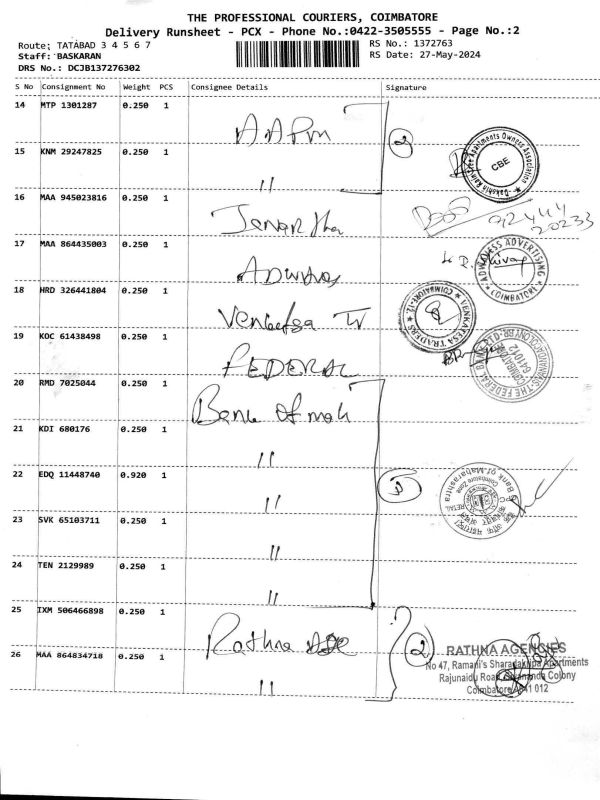 THE PROFESSIONAL COURIERS, COIMBATORE
Delivery Runsheet - PCX - Phone No.:0422-3505555 - Page No.:2
Route: TATABAD 3 4 5 6 7
RS No.: 1372763
Staff: BASKARAN
RS Date: 27-May-2024
DRS No.: DCJB137276302
S No Consignment No Weight PCS Consignee Details Signature
14 MTP 1301287 0.250 1
15 KNM 29247825 0.250 1 "
CBE
16 MAA 945023816 0.250 1
17 MAA 864435003 0.250 1
ADWAVESS ADVERTISING
COIMBATORE
18 HRD 326441804 0.250 1
VENKATESA TRADERS
COIMBATORE-12
19 KOC 61438498 0.250 1 FEDERAL
THE FEDERAL BANK LTD
641012
20 RMD 7025044 0.250 1 Bank of mah
21 KDI 680176 0.250 1 "
22 EDQ 11448740 0.920 1 "
Bank of Maharashtra
Coimbatore Zone
23 SVK 65103711 0.250 1 "
24 TEN 2129989 0.250 1 "
25 IXM 506466898 0.250 1 Rathna
2
26 MAA 864834718 0.250 1 "
RATHNA AGENCIES
No 47, Ramani's Sharadakripa Apartments
Rajunaidu Road, Sivananda Colony
Coimbatore 641 012